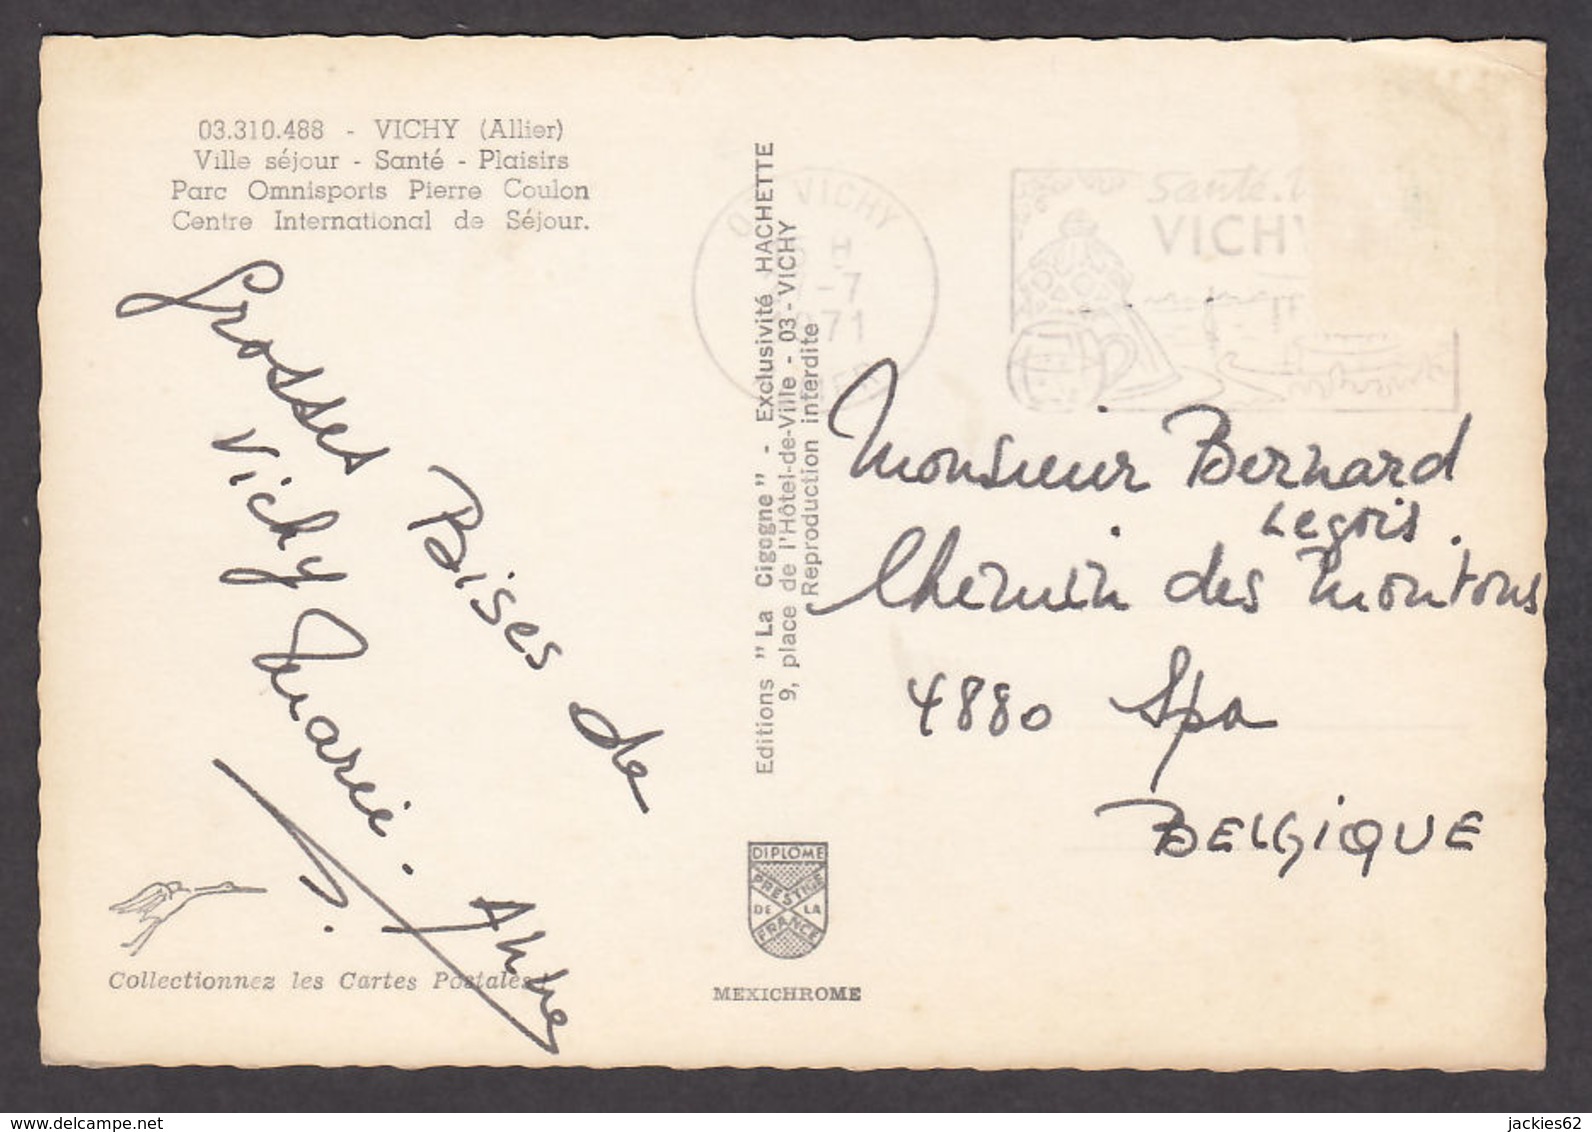 03.310.488 - VICHY (Allier)
Ville séjour - Santé - Plaisirs
Parc Omnisports Pierre Coulon
Centre International de Séjour.
Grosses Bises de
Vichy
Marie.
André
Collectionnez les Cartes Postales
Editions "La Cigogne" - Exclusivité HACHETTE
9, place de l'Hôtel-de-Ville - 03 - VICHY
Reproduction interdite
DIPLOME
PRESTIGE
DE LA
FRANCE
MEXICHROME
03 VICHY
H
-7
1971
ALLIER
Santé.
VICHY
Monsieur Bernard
Legois.
Chemin des Moutons
4880 Spa
BELGIQUE
jackies62